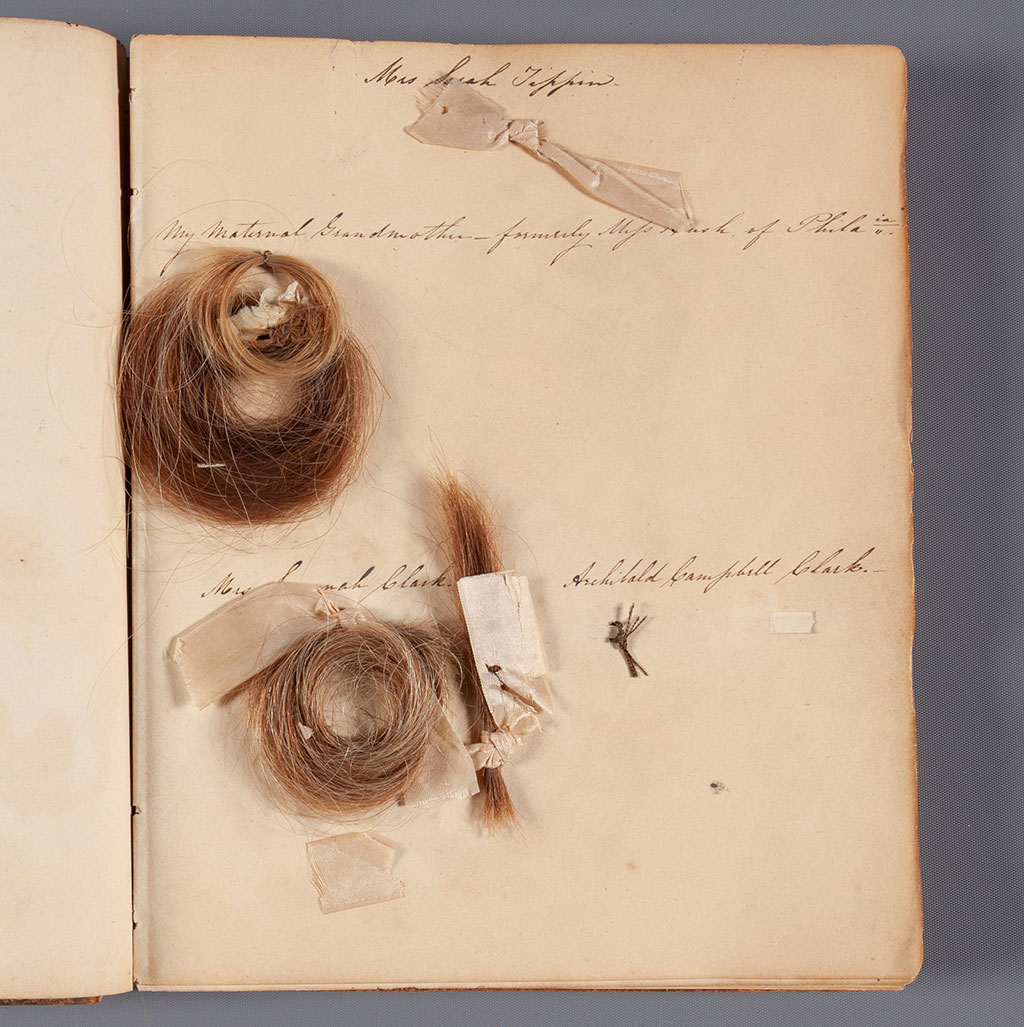 Mrs Sarah Tippin-
My Maternal Grandmother - formerly Miss of Phila ia.
Mrs Clark.
Archibald Campbell Clark.-